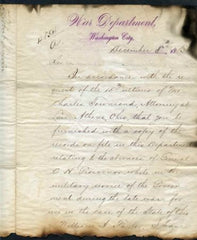 War Department,
Washington City.
December 8th
Sir
In accordance with the re
quest of the 10th ultimo of Mr.
Charles Townsend, Attorney at
Law, Athens, Ohio, that you be
furnished with a copy of the
records on file in this Department
relating to the services of General
C. H. Grosvenor while in the
military service of the Govern
ment during the late war, for
use in the case of the State of Ohio